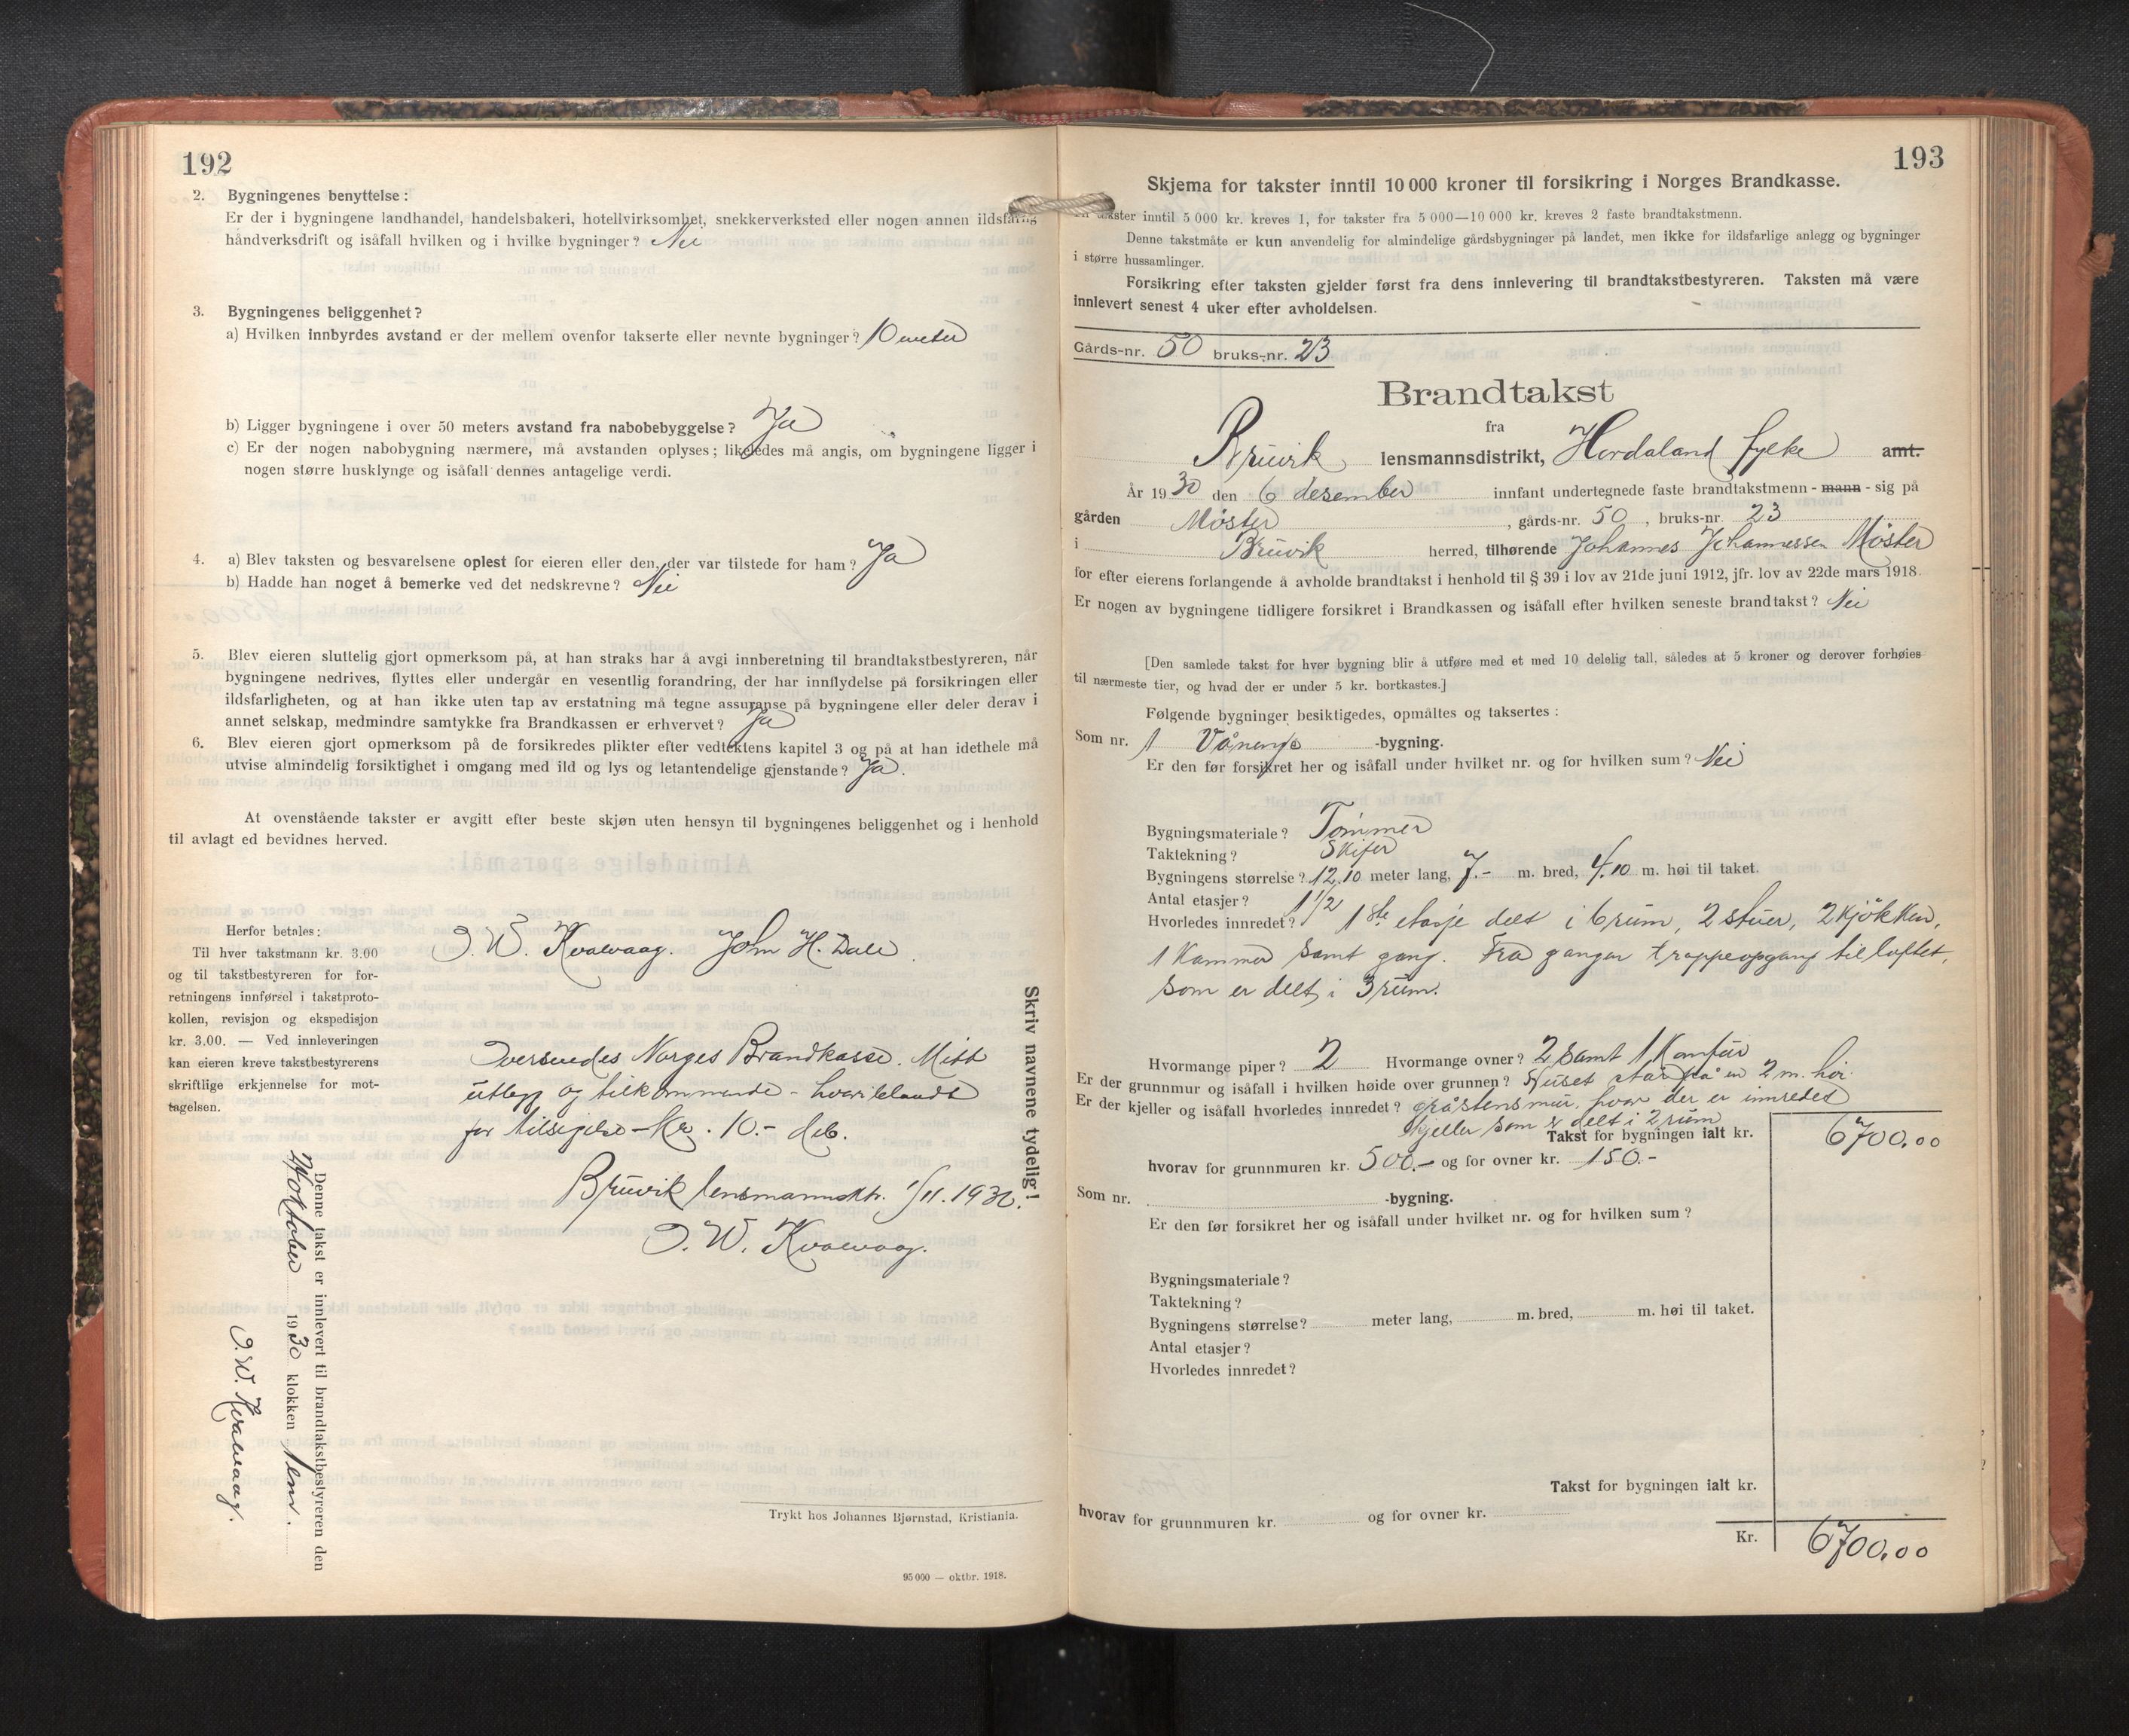 192
2. Bygningenes benyttelse:
Er der i bygningene landhandel, handelsbakeri, hotellvirksomhet, snekkerverksted eller nogen annen ildsfarlig
håndverksdrift og isåfall hvilken og i hvilke bygninger? Nei
3. Bygningenes beliggenhet?
a) Hvilken innbyrdes avstand er der mellem ovenfor takserte eller nevnte bygninger? 10 meter
b) Ligger bygningene i over 50 meters avstand fra nabobebyggelse? Ja
c) Er der nogen nabobygning nærmere, må avstanden oplyses; likeledes må angis, om bygningene ligger i
nogen større husklynge og isåfall dennes antagelige verdi.
4. a) Blev taksten og besvarelsene oplest for eieren eller den, der var tilstede for ham? Ja
b) Hadde han noget å bemerke ved det nedskrevne? Nei
5. Blev eieren sluttelig gjort opmerksom på, at han straks har å avgi innberetning til brandtakstbestyreren, når
bygningene nedrives, flyttes eller undergår en vesentlig forandring, der har innflydelse på forsikringen eller
ildsfarligheten, og at han ikke uten tap av erstatning må tegne assuranse på bygningene eller deler derav i
annet selskap, medmindre samtykke fra Brandkassen er erhvervet? Ja
6. Blev eieren gjort opmerksom på de forsikredes plikter efter vedtektens kapitel 3 og på at han idethele må
utvise almindelig forsiktighet i omgang med ild og lys og letantendelige gjenstande? Ja.
At ovenstående takster er avgitt efter beste skjøn uten hensyn til bygningenes beliggenhet og i henhold
til avlagt ed bevidnes herved.
O. W. Kvalvaag. John H. Dale.
Herfor betales:
Til hver takstmann kr. 3.00
og til takstbestyreren for for-
retningens innførsel i takstproto-
kollen, revisjon og ekspedisjon
kr. 3.00. — Ved innleveringen
kan eieren kreve takstbestyrerens
skriftlige erkjennelse for mot-
tagelsen.
Oversendes Norges Brandkasse. Mitt
utlegg og tilkommende - hvoriblandt
for tilsigelse - kr. 10.- deb.
Bruvik lensmannsktr. 1/11. 1930.
O. W. Kvalvaag.
Skriv navnene tydelig!
Denne takst er innlevert til brandtakstbestyreren den
oktober 1930 klokken fem.
O. W. Kvalvaag.
Trykt hos Johannes Bjørnstad, Kristiania.
95 000 — oktbr. 1918.
193
Skjema for takster inntil 10 000 kroner til forsikring i Norges Brandkasse.
takster inntil 5 000 kr. kreves 1, for takster fra 5 000—10 000 kr. kreves 2 faste brandtakstmenn.
Denne takstmåte er kun anvendelig for almindelige gårdsbygninger på landet, men ikke for ildsfarlige anlegg og bygninger
i større hussamlinger.
Forsikring efter taksten gjelder først fra dens innlevering til brandtakstbestyreren. Taksten må være
innlevert senest 4 uker efter avholdelsen.
Gårds-nr. 50 bruks-nr. 23
Brandtakst
fra
Bruvik lensmannsdistrikt, Hordaland fylke amt.
År 1930 den 6 desember innfant undertegnede faste brandtakstmenn - mann - sig på
gården Møster, gårds-nr. 50, bruks-nr. 23
i Bruvik herred, tilhørende Johannes Johannessen Møster
for efter eierens forlangende å avholde brandtakst i henhold til § 39 i lov av 21de juni 1912, jfr. lov av 22de mars 1918.
Er nogen av bygningene tidligere forsikret i Brandkassen og isåfall efter hvilken seneste brandtakst? Nei
[Den samlede takst for hver bygning blir å utføre med et med 10 delelig tall, således at 5 kroner og derover forhøies
til nærmeste tier, og hvad der er under 5 kr. bortkastes.]
Følgende bygninger besiktigedes, opmåltes og taksertes:
Som nr. 1 Vånings -bygning.
Er den før forsikret her og isåfall under hvilket nr. og for hvilken sum? Nei
Bygningsmateriale? Tømmer
Taktekning? Skifer
Bygningens størrelse? 12.10 meter lang, 7.- m. bred, 4.10 m. høi til taket.
Antal etasjer? 1 1/2
Hvorledes innredet? 1ste etasje delt i 6 rum, 2 stuer, 2 kjøkken,
1 kammer samt gang. Fra gangen trappeopgang til loftet,
som er delt i 3 rum.
Hvormange piper? 2 Hvormange ovner? 2 samt 1 komfur
Er der grunnmur og isåfall i hvilken høide over grunnen? Huset står på en 2 m. høi
Er der kjeller og isåfall hvorledes innredet? gråstensmur, hvor der er innredet
kjeller som er delt i 2 rum
Takst for bygningen ialt kr. 6700.00
hvorav for grunnmuren kr. 500.- og for ovner kr. 150.-
Som nr. -bygning.
Er den før forsikret her og isåfall under hvilket nr. og for hvilken sum?
Bygningsmateriale?
Taktekning?
Bygningens størrelse? meter lang, m. bred, m. høi til taket.
Antal etasjer?
Hvorledes innredet?
Takst for bygningen ialt kr.
hvorav for grunnmuren kr. og for ovner kr.
Kr. 6700.00